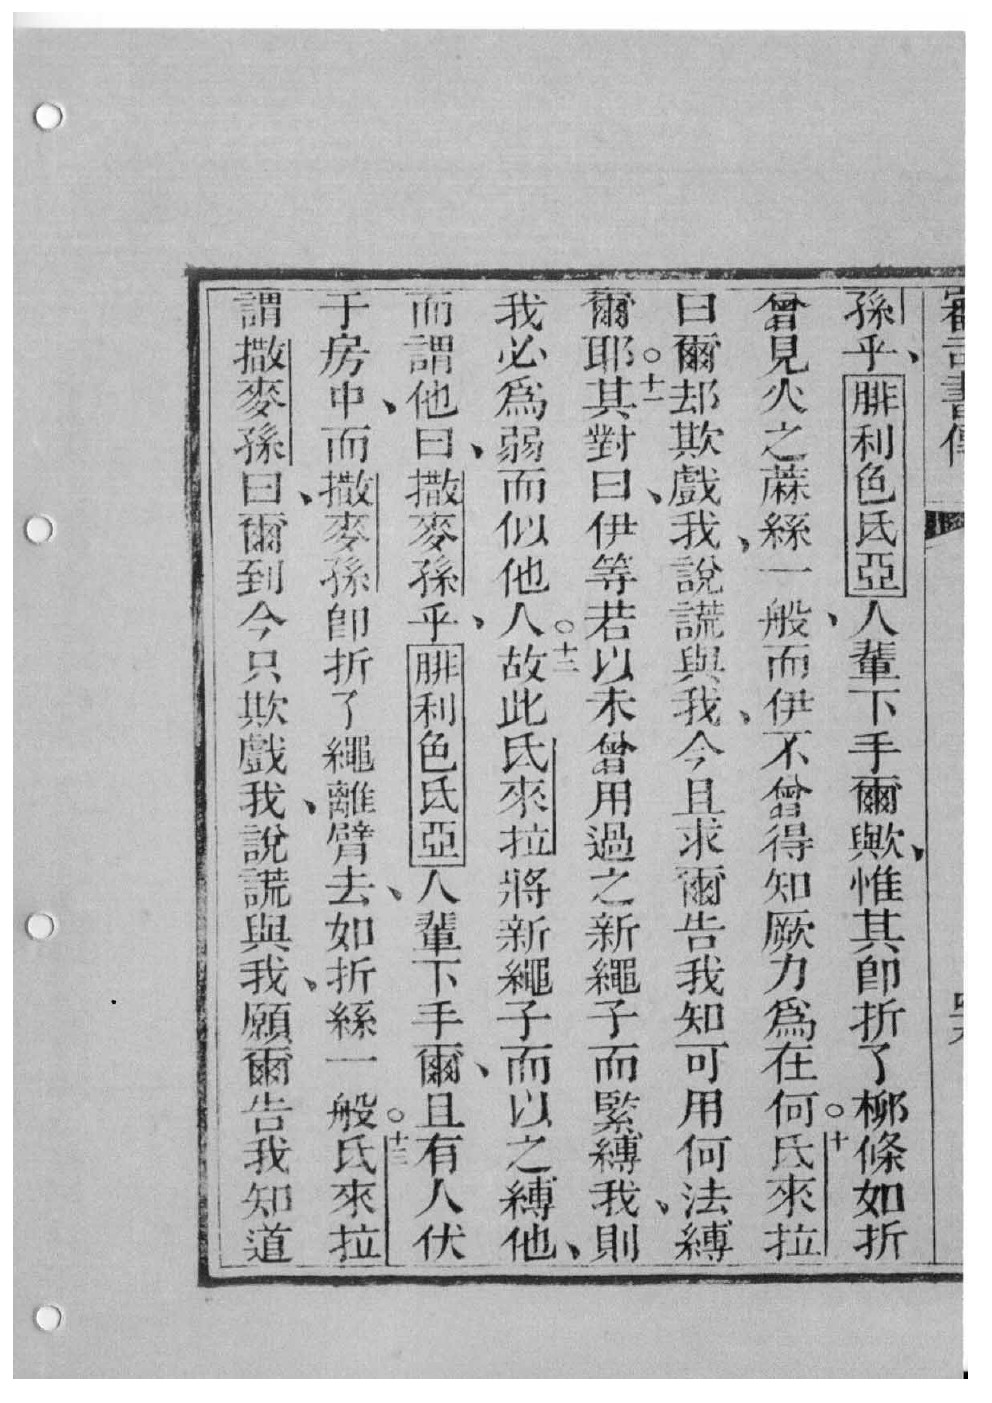 審司書傳
孫乎、腓利色氏亞人輩下手爾歟、惟其即折了柳條如折
曾見火之蔴絲一般、而伊不曾得知厥力爲在何。十氏來拉
曰爾却欺戲我、說謊與我、今且求爾告我知可用何法縛
爾耶。十一其對曰、伊等若以未曾用過之新繩子而緊縛我、則
我必爲弱而似他人。十二故此氏來拉將新繩子而以之縛他、
而謂他曰、撒麥孫乎、腓利色氏亞人輩下手爾、且有人伏
于房中、而撒麥孫即折了繩離臂去、如折絲一般。十三氏來拉
謂撒麥孫曰、爾到今只欺戲我、說謊與我、願爾告我知道